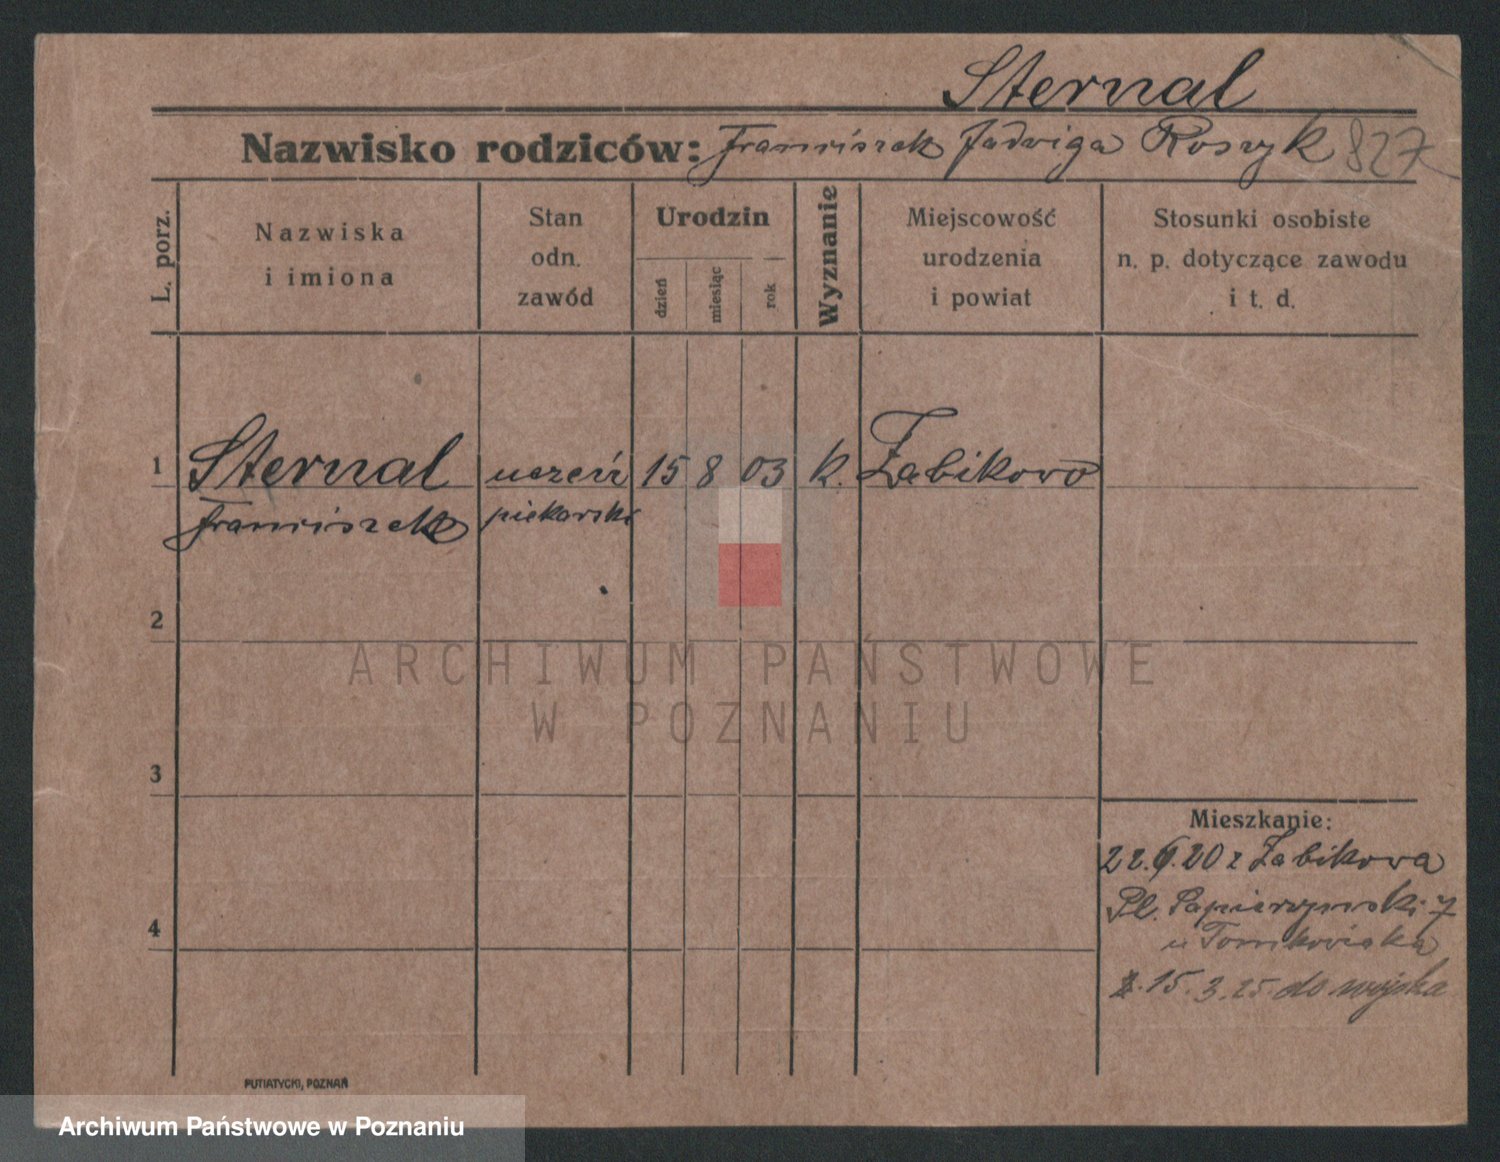 Sternal
Nazwisko rodziców: Franciszek Jadwiga Roszyk 827
L. porz.
Nazwiska
i imiona
Stan
odn.
zawód
Urodzin
dzień
miesiąc
rok
Wyznanie
Miejscowość
urodzenia
i powiat
Stosunki osobiste
n. p. dotyczące zawodu
i t. d.
1 Sternal uczeń 15 8 03 k. Żabikowo
Franciszek piekarski
2
3
4
Mieszkanie:
22. .20 z Żabikowa
Pl. 7
u
15.3.25 do wojska
PUTIATYCKI, POZNAŃ
ARCHIWUM PAŃSTWOWE
W POZNANIU
Archiwum Państwowe w Poznaniu